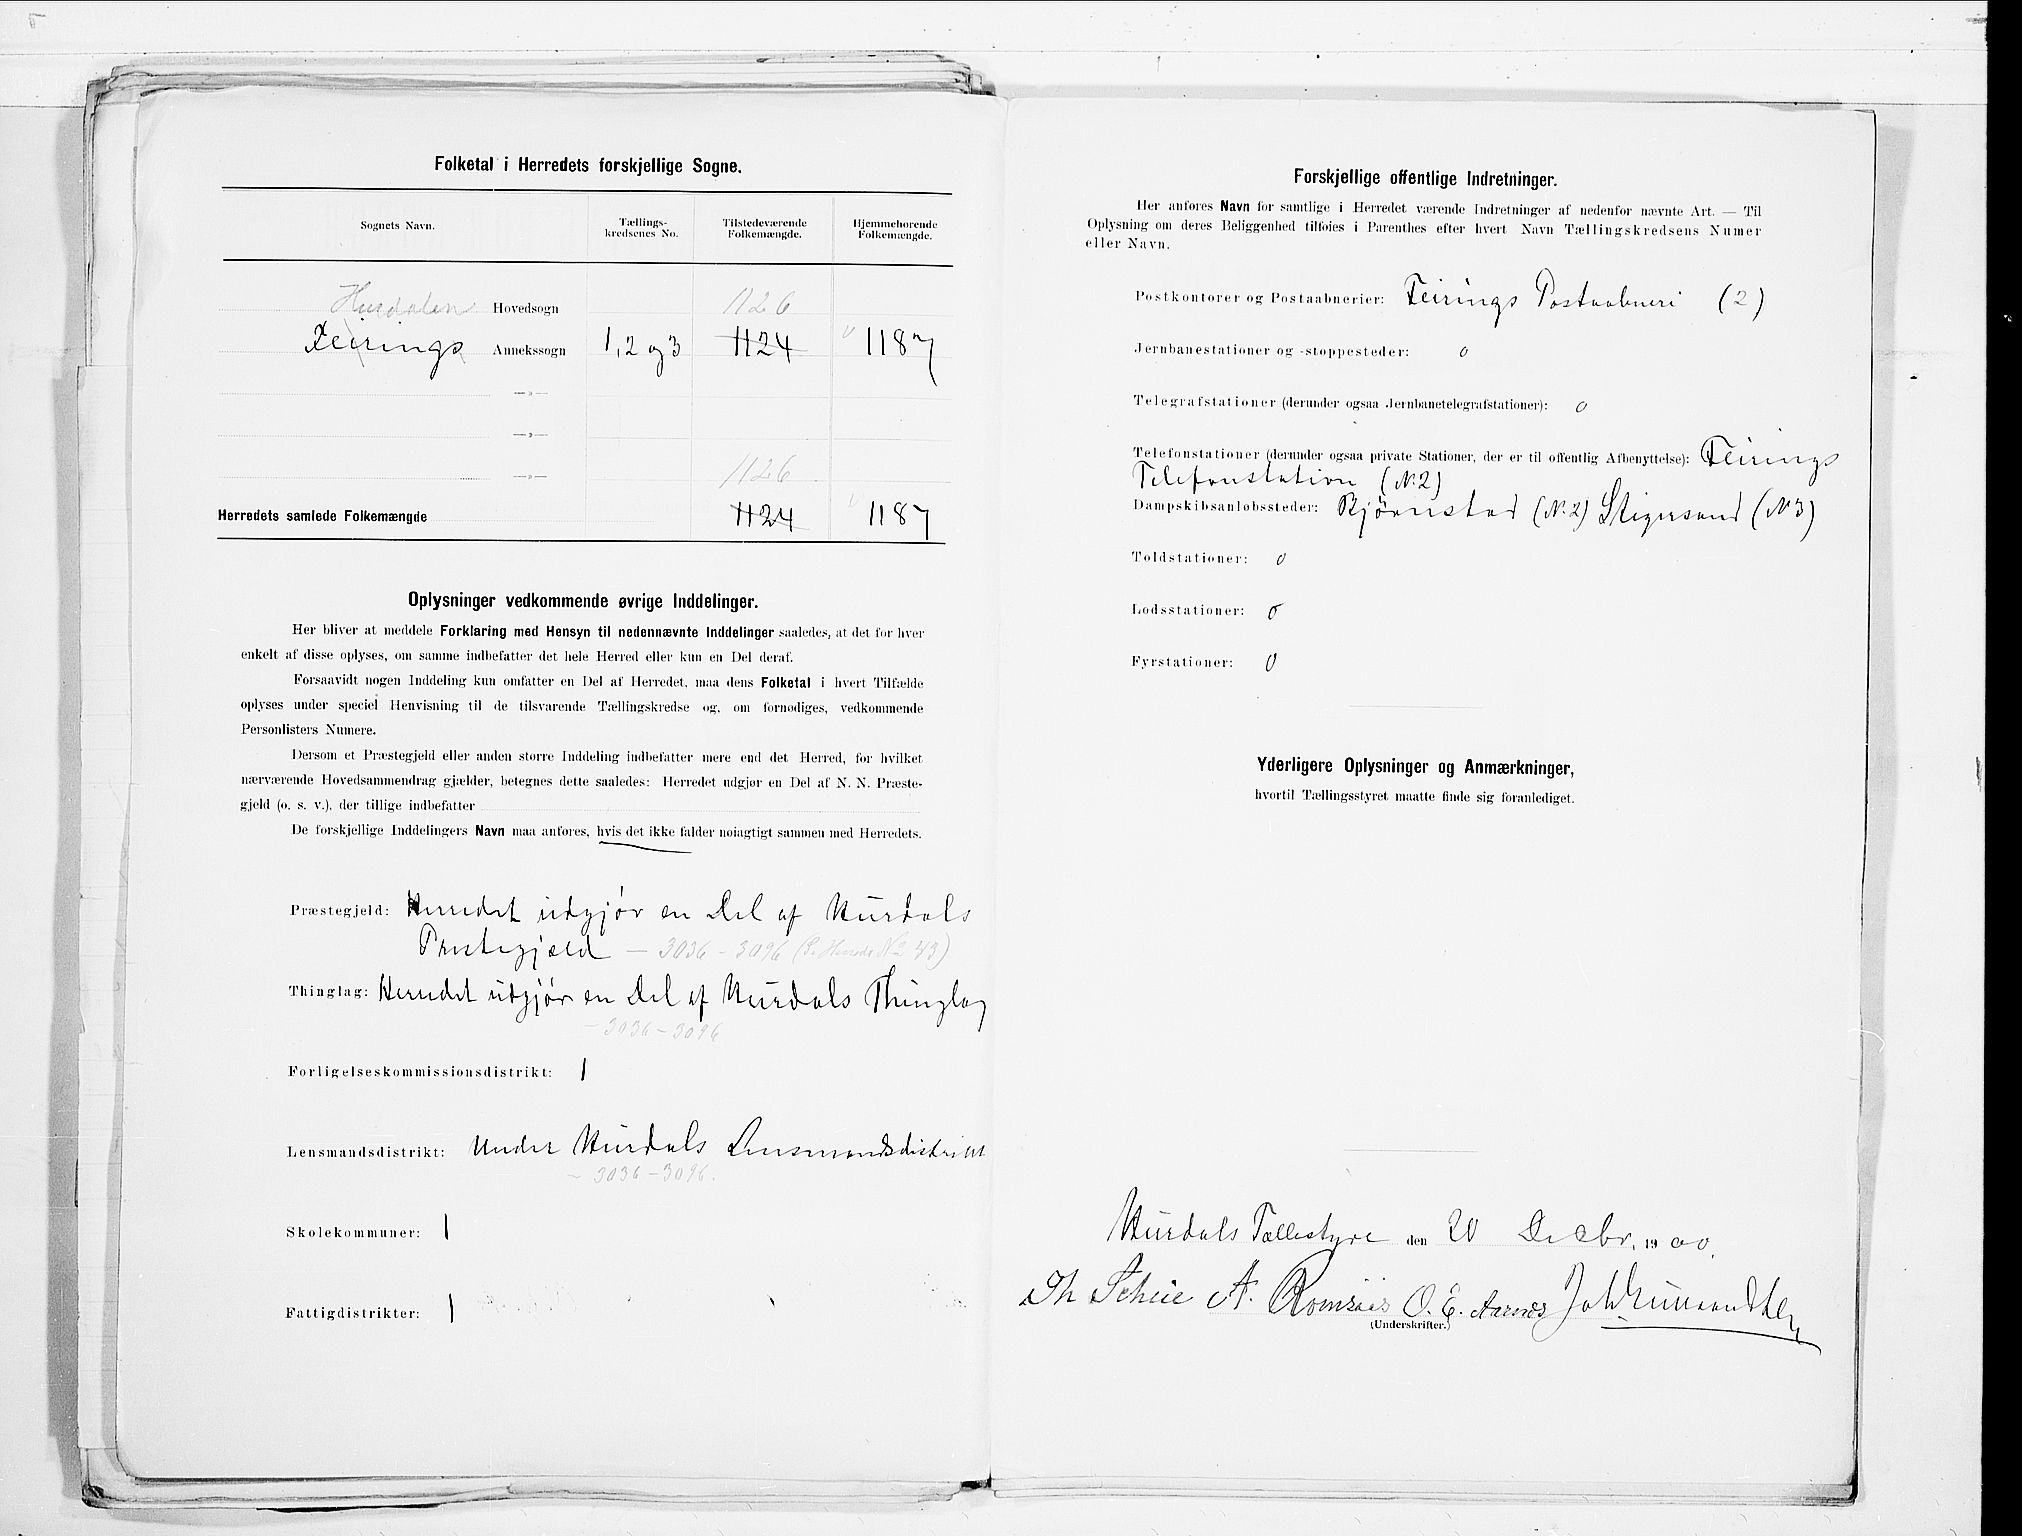 Folketal i Herredets forskjellige Sogne.
Sognets Navn. Tællings-kredsenes No. Tilstedeværende Folkemængde. Hjemmehørende Folkemængde.
Hurdalen Hovedsogn 1126
Feirings Annekssogn 1, 2 og 3 1124 1187
—»—
—»—
—»— 1126
Herredets samlede Folkemængde 1124 1187
Oplysninger vedkommende øvrige Inddelinger.
Her bliver at meddele Forklaring med Hensyn til nedennævnte Inddelinger saaledes, at det for hver
enkelt af disse oplyses, om samme indbefatter det hele Herred eller kun en Del deraf.
Forsaavidt nogen Inddeling kun omfatter en Del af Herredet, maa dens Folketal i hvert Tilfælde
oplyses under speciel Henvisning til de tilsvarende Tællingskredse og, om fornødiges, vedkommende
Personlisters Numere.
Dersom et Præstegjeld eller anden større Inddeling indbefatter mere end det Herred, for hvilket
nærværende Hovedsammendrag gjælder, betegnes dette saaledes: Herredet udgjør en Del af N. N. Præste-
gjeld (o. s. v.), der tillige indbefatter
De forskjellige Inddelingers Navn maa anføres, hvis det ikke falder nøiagtigt sammen med Herredets.
Præstegjeld: Herredet udgjør en Del af Hurdals
Prestegjæld — 3036 - 3096 (S. Herred No 43)
Thinglag: Herredet udgjør en Del af Hurdals Thinglag
- 3036 - 3096
Forligelseskommissionsdistrikt: 1
Lensmandsdistrikt: Under Hurdals Lensmandsdistrikt
- 3036 - 3096.
Skolekommuner: 1
Fattigdistrikter: 1
Forskjellige offentlige Indretninger.
Her anføres Navn for samtlige i Herredet værende Indretninger af nedenfor nævnte Art. — Til
Oplysning om deres Beliggenhed tilføies i Parenthes efter hvert Navn Tællingskredsens Numer
eller Navn.
Postkontorer og Postaabnerier: Feirings Postaabneri (2)
Jernbanestationer og -stoppesteder: 0
Telegrafstationer (derunder ogsaa Jernbanetelegrafstationer): 0
Telefonstationer (derunder ogsaa private Stationer, der er til offentlig Afbenyttelse): Feirings
Telefonstation (N. 2)
Dampskibsanløbssteder: Bjørnstad (N. 2) Stigersand (N 3)
Toldstationer: 0
Lodsstationer: 0
Fyrstationer: 0
Yderligere Oplysninger og Anmærkninger,
hvortil Tællingsstyret maatte finde sig foranlediget.
Hurdals Tællestyre den 20 Decbr. 1900.
Th Scheie A. Romsaas O. E. Aarnes
(Underskrifter.)